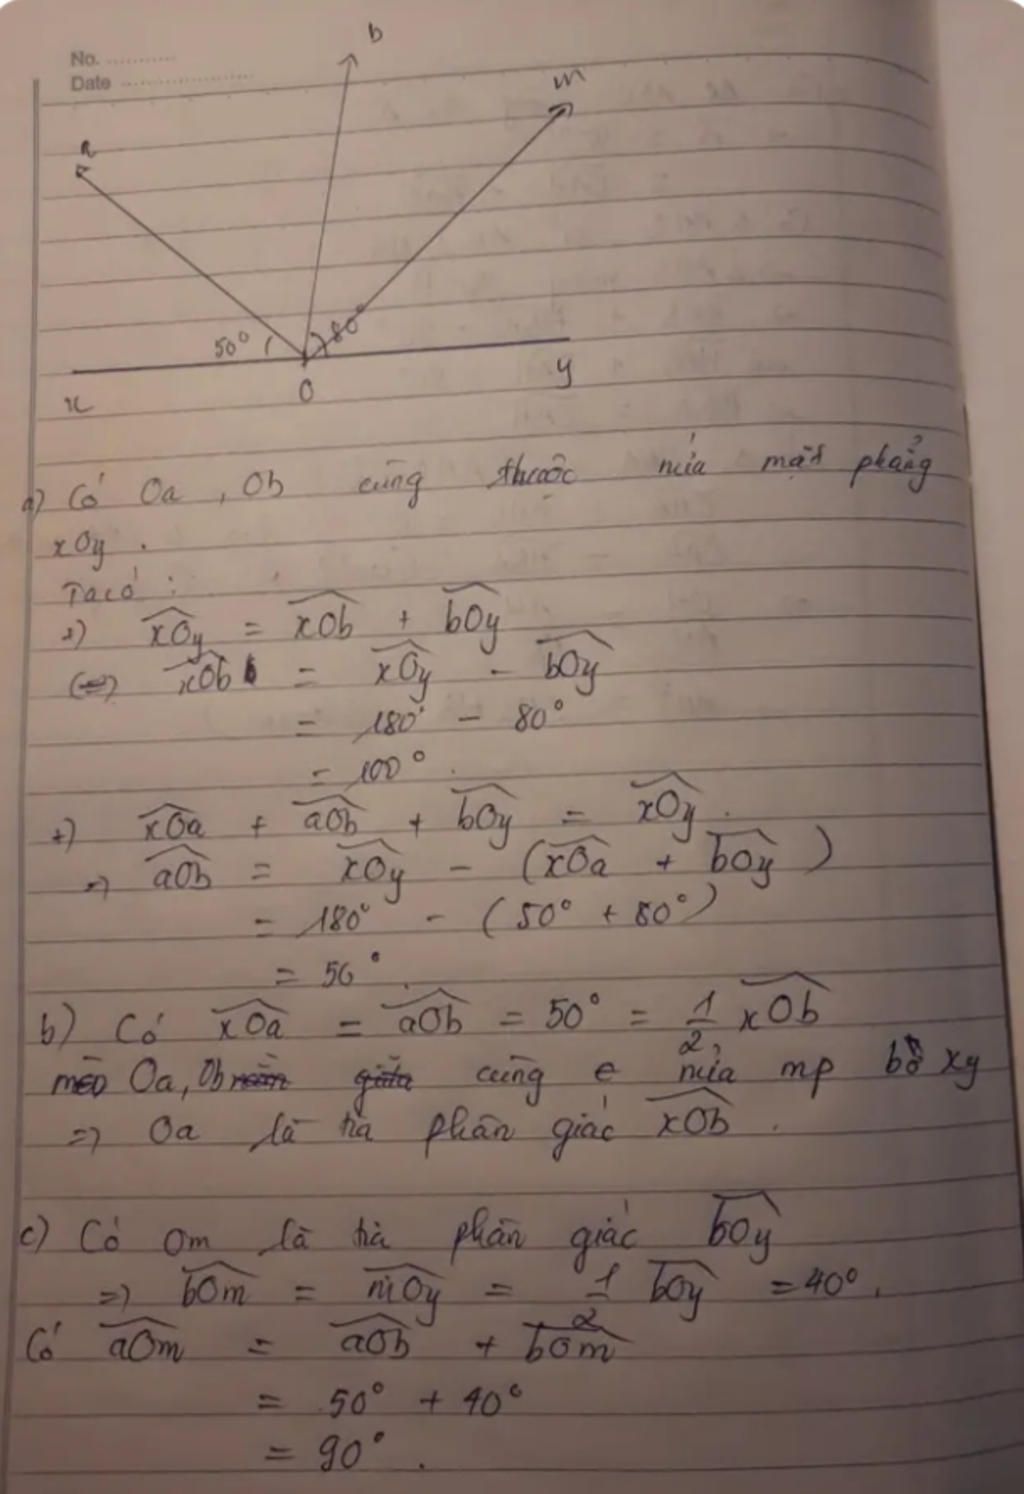 No. ............
Date ......................
b
m
a
50°
80°
x
O
y
a) Có Oa , Ob cùng thuộc nửa mặt phẳng
xOy .
Ta có :
+) xOy = xOb + bOy
(=) xOb = xOy - bOy
= 180° - 80°
= 100° .
+) xOa + aOb + bOy = xOy .
=) aOb = xOy - (xOa + bOy )
= 180° - ( 50° + 80°)
= 50° .
b) Có xOa = aOb = 50° = 1/2 xOb
mà Oa, Ob nằm giữa cùng e nửa mp bờ xy
=) Oa là tia phân giác xOb .
c) Có Om là tia phân giác bOy
=) bOm = mOy = 1/2 bOy = 40° .
Có aOm = aOb + bOm
= 50° + 40°
= 90° .